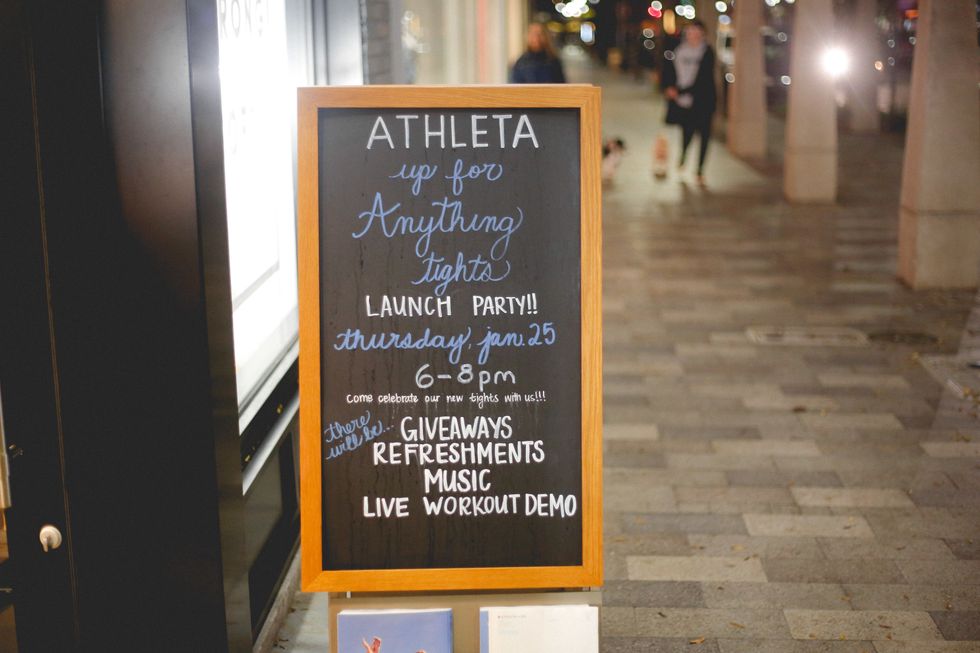 RONG
ATHLETA
up for
Anything
tights
LAUNCH PARTY!!
thursday, jan. 25
6-8pm
come celebrate our new tights with us!!!
there
will be...
GIVEAWAYS
REFRESHMENTS
MUSIC
LIVE WORKOUT DEMO